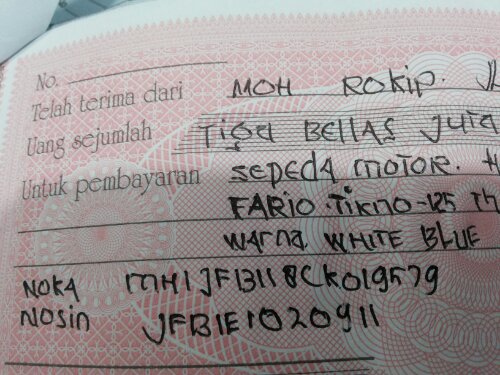 No.
Telah terima dari MOH ROKIP.
Uang sejumlah Tiga BELLAS JUTA
Untuk pembayaran SEPEDA MOTOR. H
FARIO TIKNO-125 TH
WARNA WHITE BLUE
NOKA MH1JFB118CK019579
NOSIN JFB1E1020911